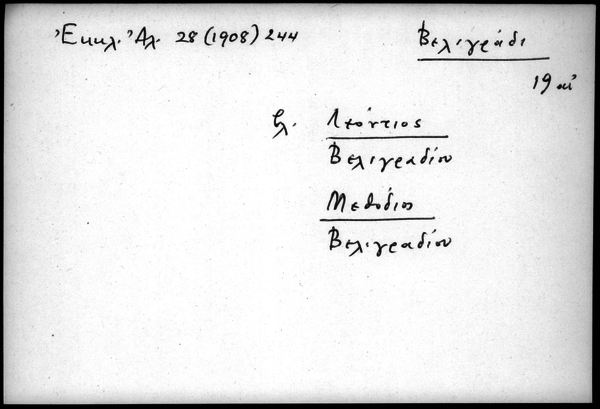 Ἐκκλ. Ἀλ. 28 (1908) 244
Βελιγράδι
19 αἰ
βλ. Λεόντιος
Βελιγραδίου
Μεθόδιος
Βελιγραδίου